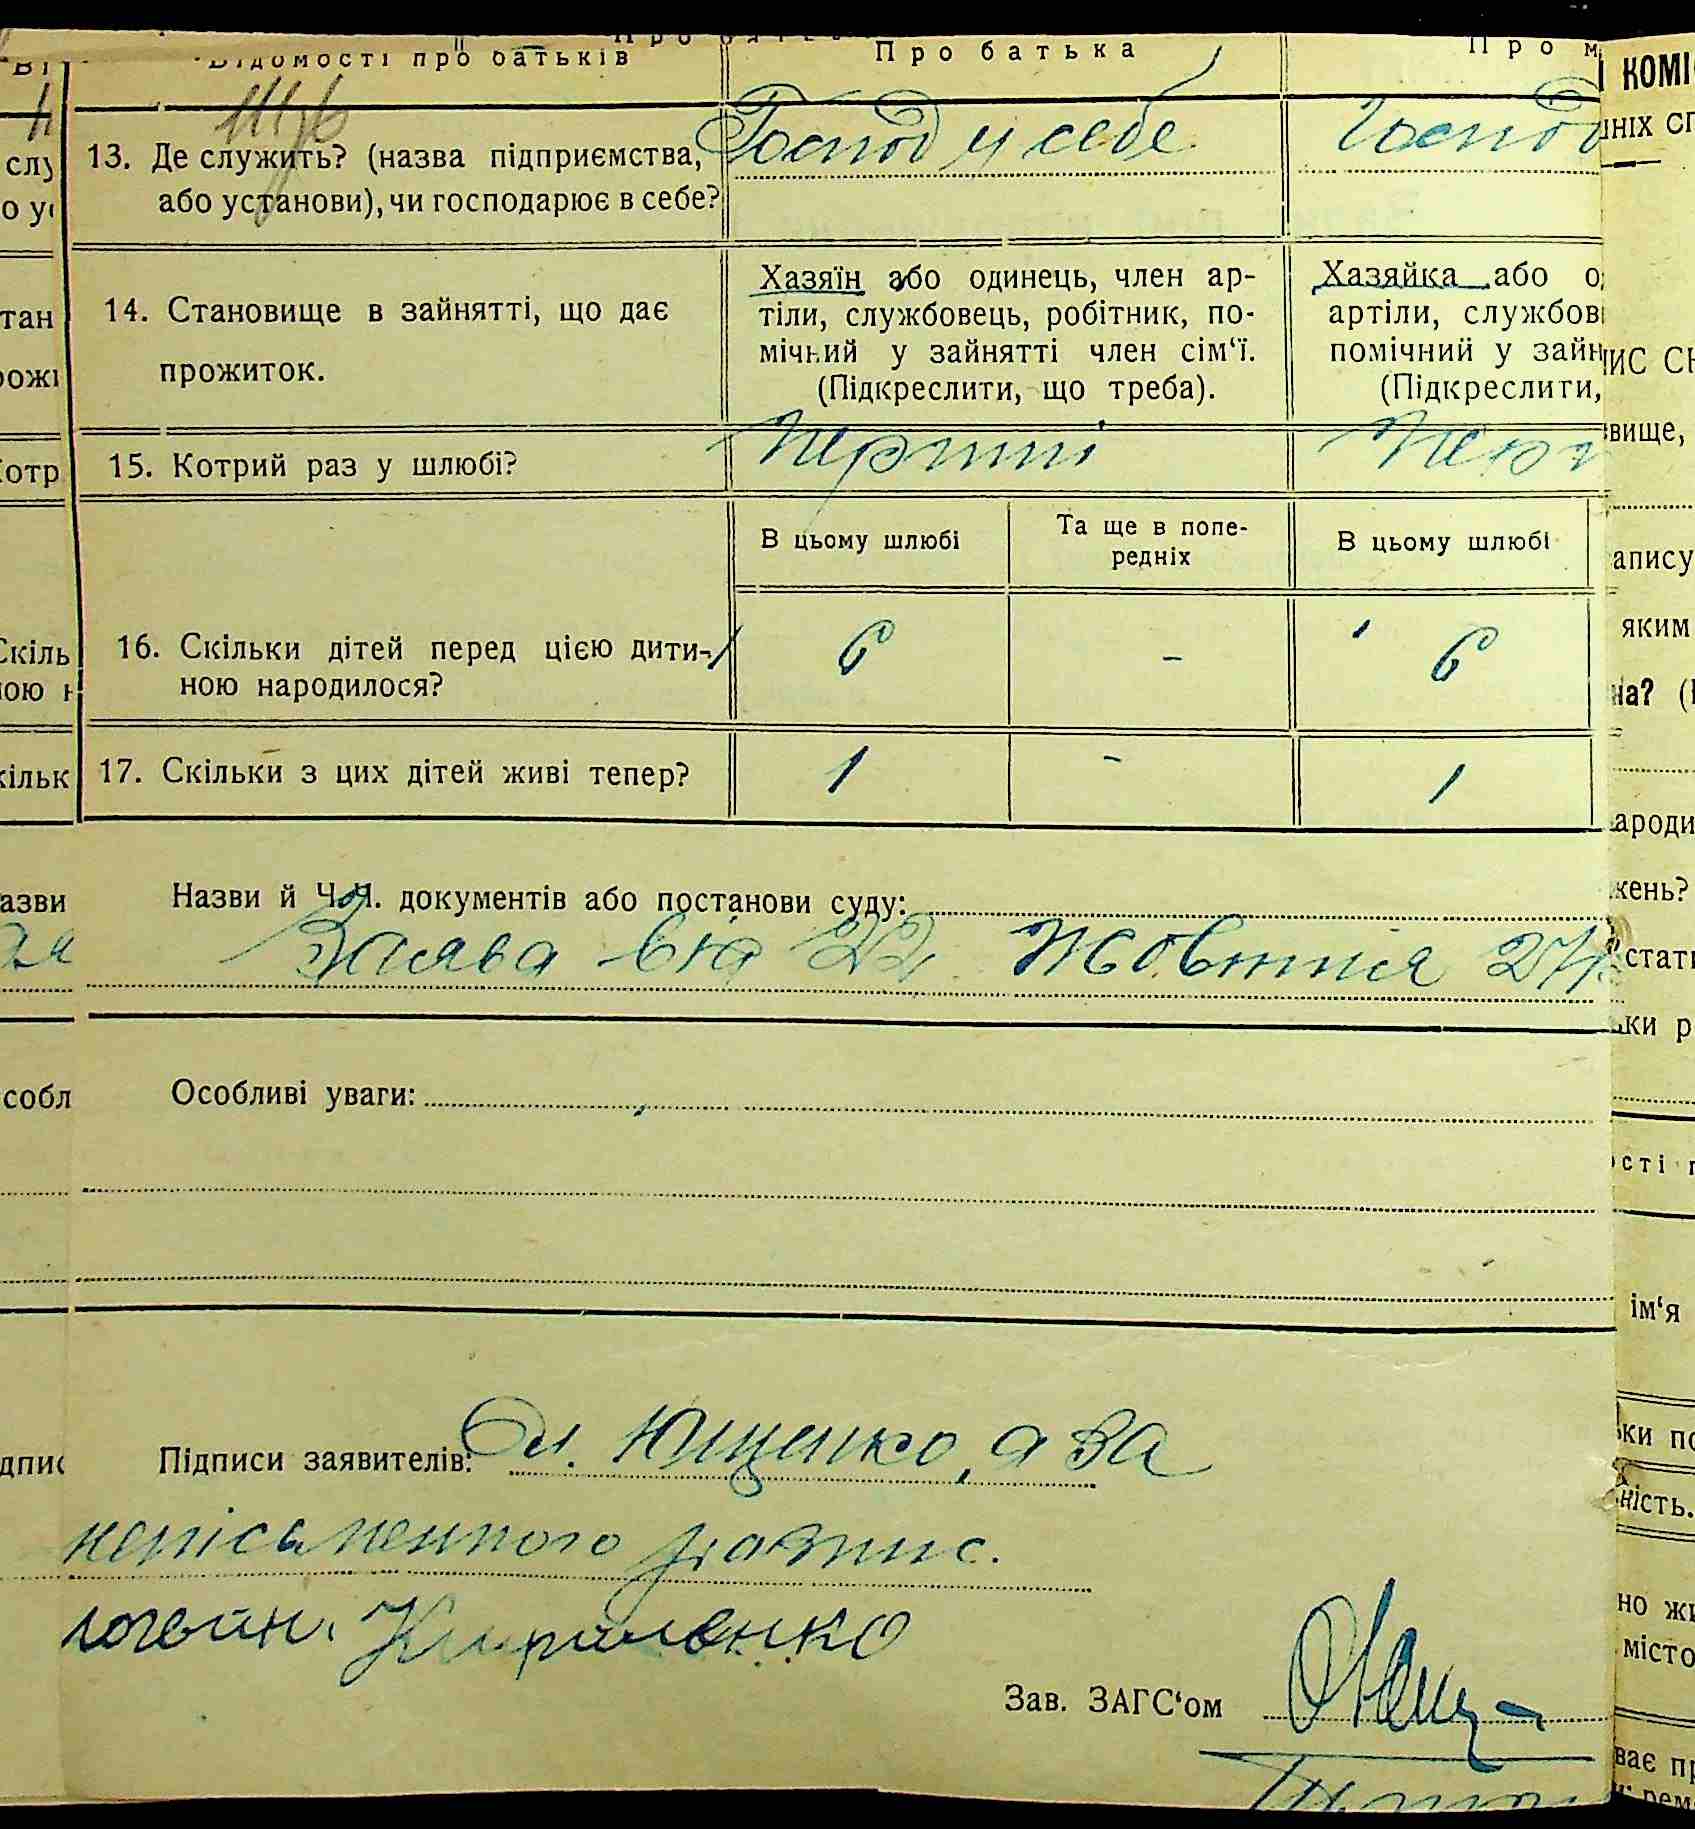 Відомості про батьків
Про батька
Про м
13. Де служить? (назва підприємства,
або установи), чи господарює в себе?
Господ у себе
Господ
14. Становище в зайнятті, що дає
прожиток.
Хазяїн або одинець, член ар-
тіли, службовець, робітник, по-
мічний у зайнятті член сім‘ї.
(Підкреслити, що треба).
Хазяйка або о
артіли, службов
помічний у зайн
(Підкреслити,
15. Котрий раз у шлюбі?
Перший
В цьому шлюбі
Та ще в попе-
редніх
В цьому шлюбі
16. Скільки дітей перед цією дити-
ною народилося?
6
-
6
17. Скільки з цих дітей живі тепер?
1
-
1
Назви й Ч.Ч. документів або постанови суду:
Заява від 22 Жовтня 27р.
Особливі уваги:
Підписи заявителів:
Ющенко, а за
неписьменного розпис.
Кириленко
Зав. ЗАГС‘ом
КОМІ
них сп
ПИС
вище,
апису
яким
на?
ароди
жень?
стат
ки р
ості
ім‘я
ки по
ність.
но жи
місто
ває пр
слу
тан
отр
Скіль
ною н
кільк
азви
собл